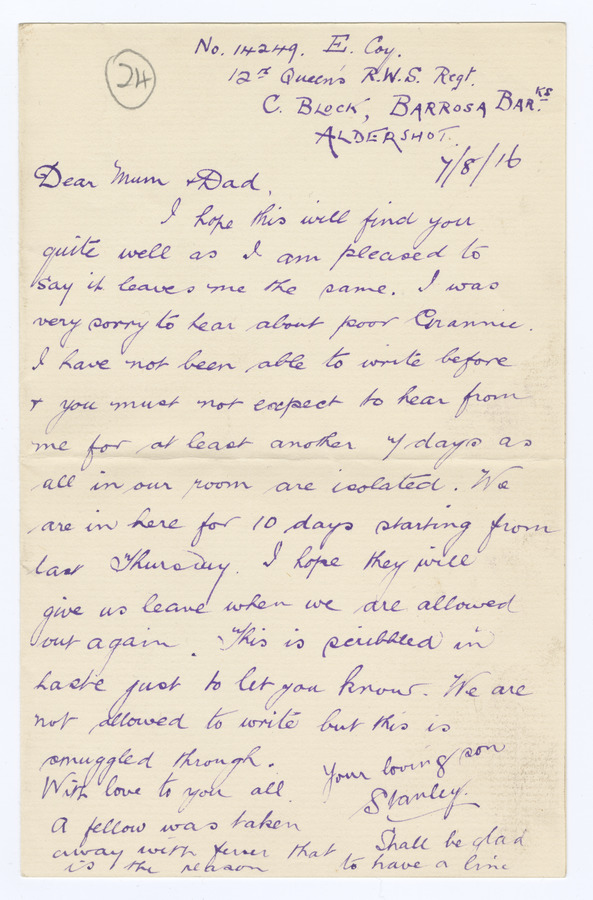 24
No. 14249. E. Coy.
12th Queen's R.W.S. Regt.
C. Block, Barrosa Barks.
Aldershot.
7/8/16
Dear Mum & Dad,
I hope this will find you
quite well as I am pleased to
say it leaves me the same. I was
very sorry to hear about poor Grannie.
I have not been able to write before
& you must not expect to hear from
me for at least another 7 days as
all in our room are isolated. We
are in here for 10 days starting from
last Thursday. I hope they will
give us leave when we are allowed
out again. This is scribbled in
haste just to let you know. We are
not allowed to write but this is
smuggled through.
With love to you all
Your loving son
Stanley.
A fellow was taken
away with fever that
is the reason
Shall be glad
to have a line